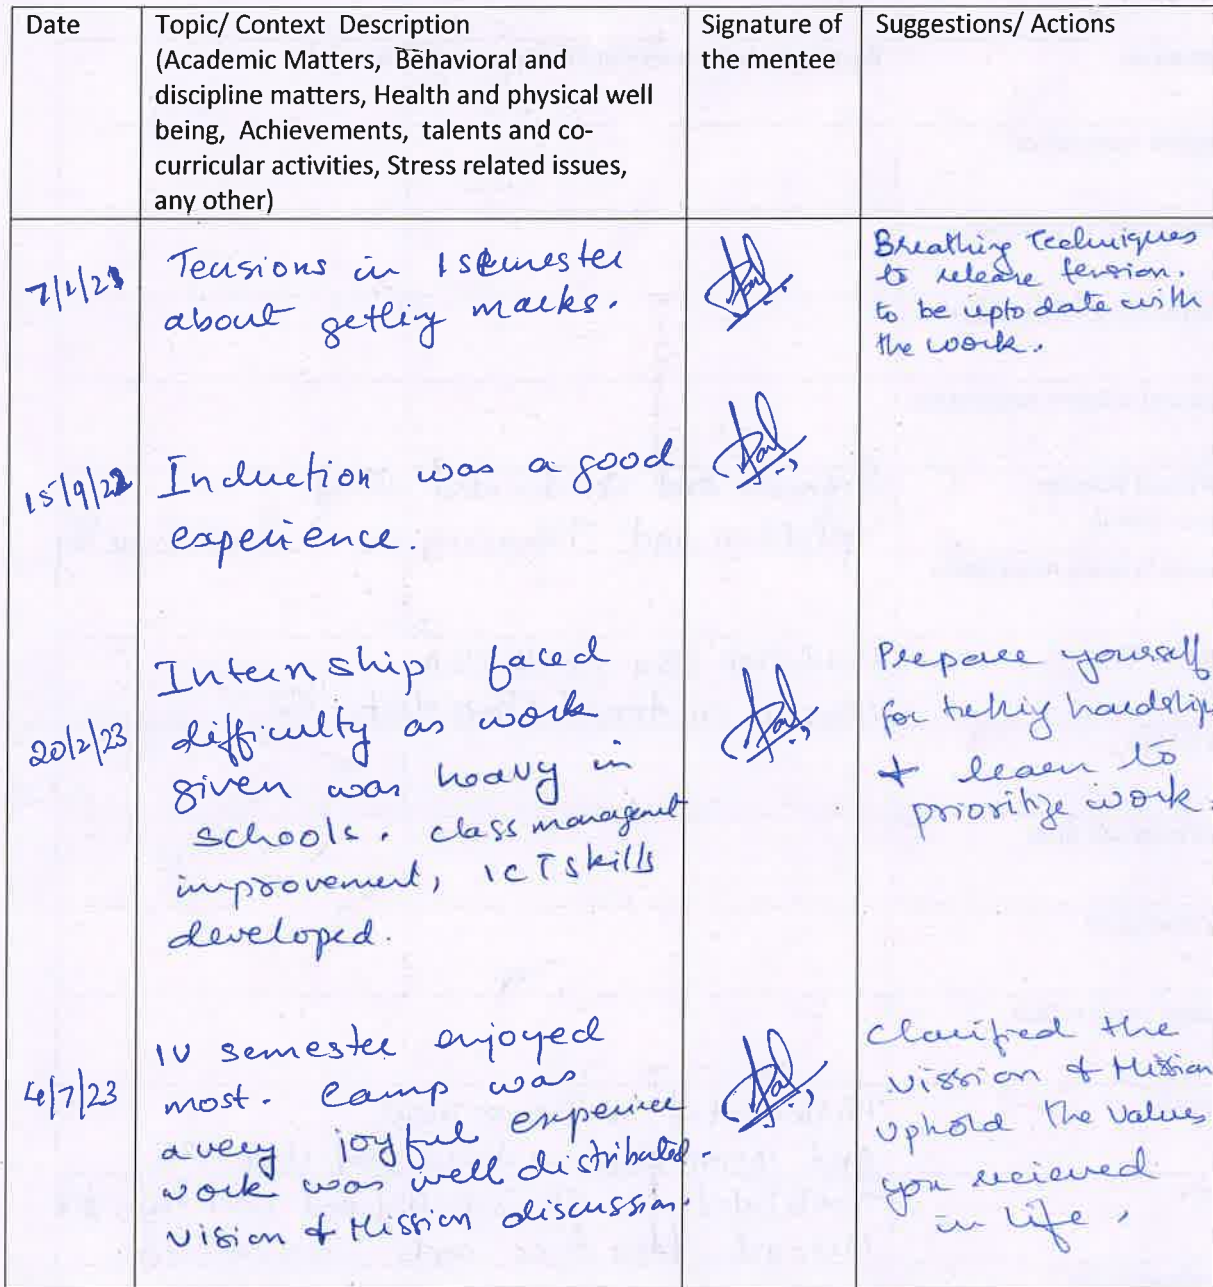 Date
Topic/ Context Description
(Academic Matters, Behavioral and
discipline matters, Health and physical well
being, Achievements, talents and co-
curricular activities, Stress related issues,
any other)
Signature of
the mentee
Suggestions/ Actions
Tensions in I semester
about getting marks.
Breathing Techniques
to release tension.
to be upto date with
the work.
15/9/22
Induction was a good
experience.
20/2/23
Internship faced
difficulty as work
given was heavy in
schools. class management
improvement, ICT skills
developed.
Prepare yourself
for taking hardship
& learn to
prioritize work.
4/7/23
IV semester enjoyed
most. Camp was
a very joyful experience
work was well distributed.
Vision & Mission discussion.
Clarified the
vission & Mission
uphold the values
you recieved
in life.